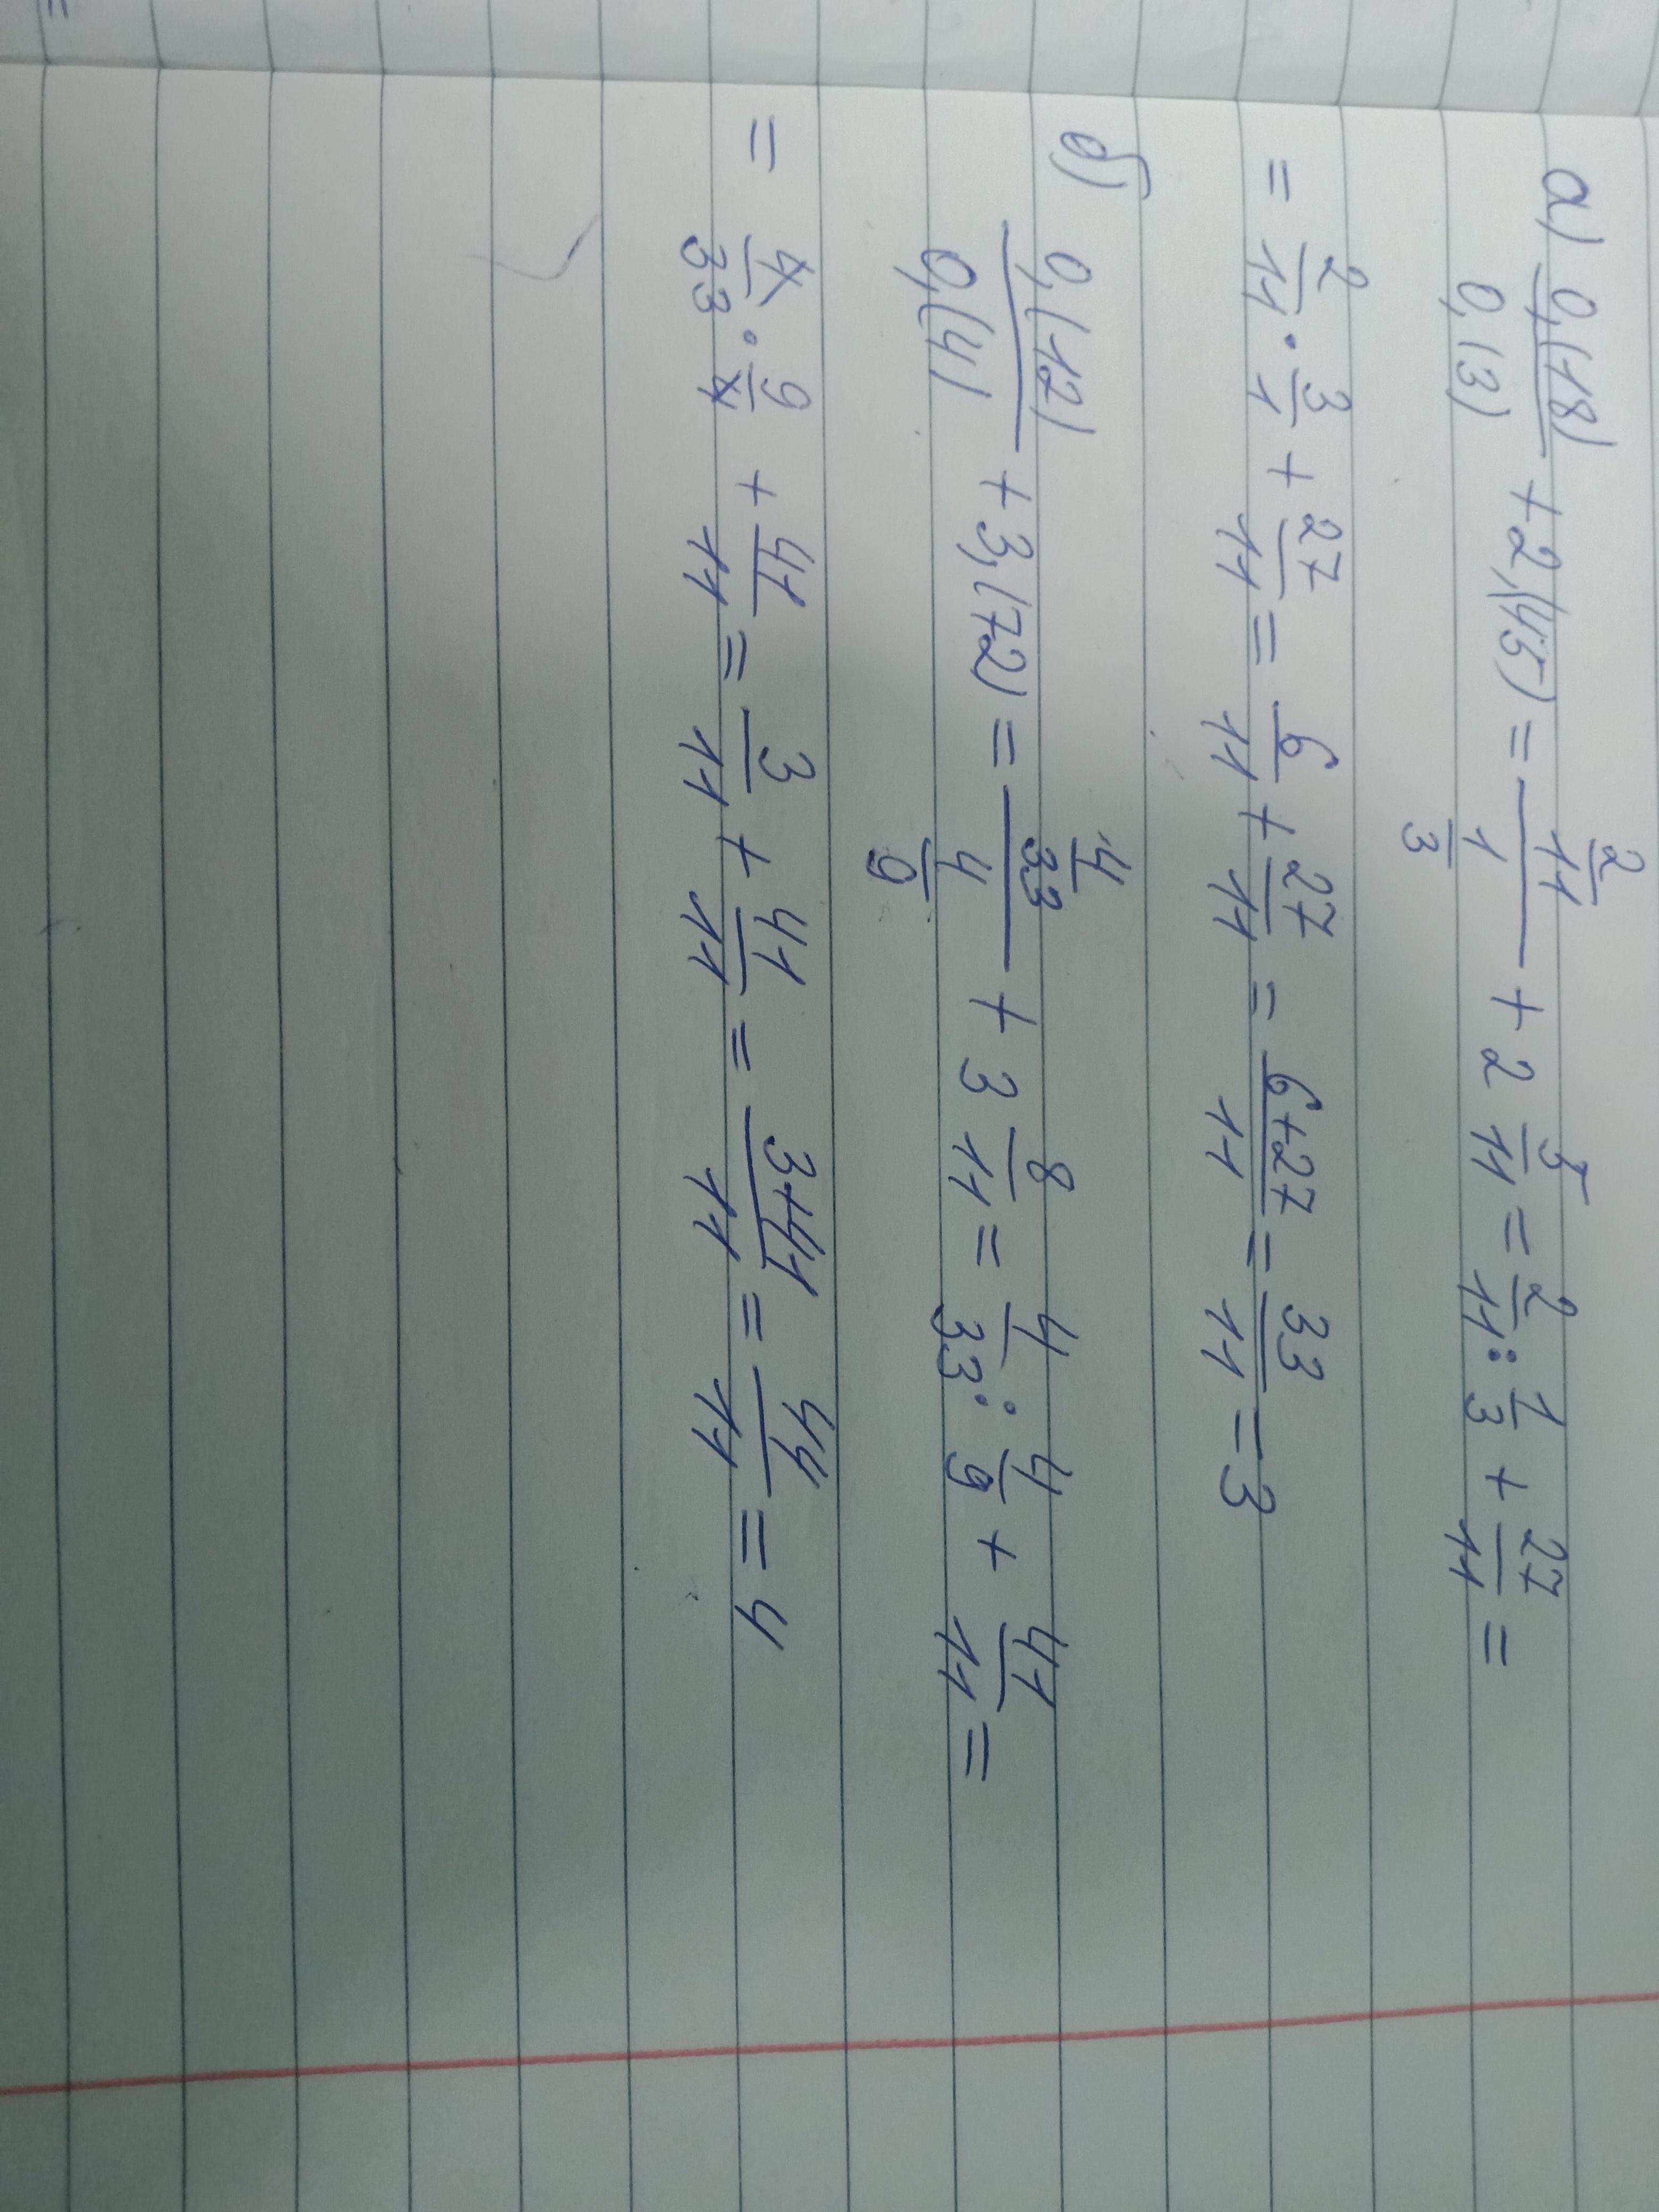 а) 0,(18)/0,(3) + 2,(45) = 2/11 / 1/3 + 2 5/11 = 2/11 : 1/3 + 27/11 =
= 2/11 · 3/1 + 27/11 = 6/11 + 27/11 = 6+27/11 = 33/11 = 3
б) 0,(12)/0,(4) + 3,(72) = 4/33 / 4/9 + 3 8/11 = 4/33 : 4/9 + 41/11 =
= 4/33 · 9/4 + 41/11 = 3/11 + 41/11 = 3+41/11 = 44/11 = 4